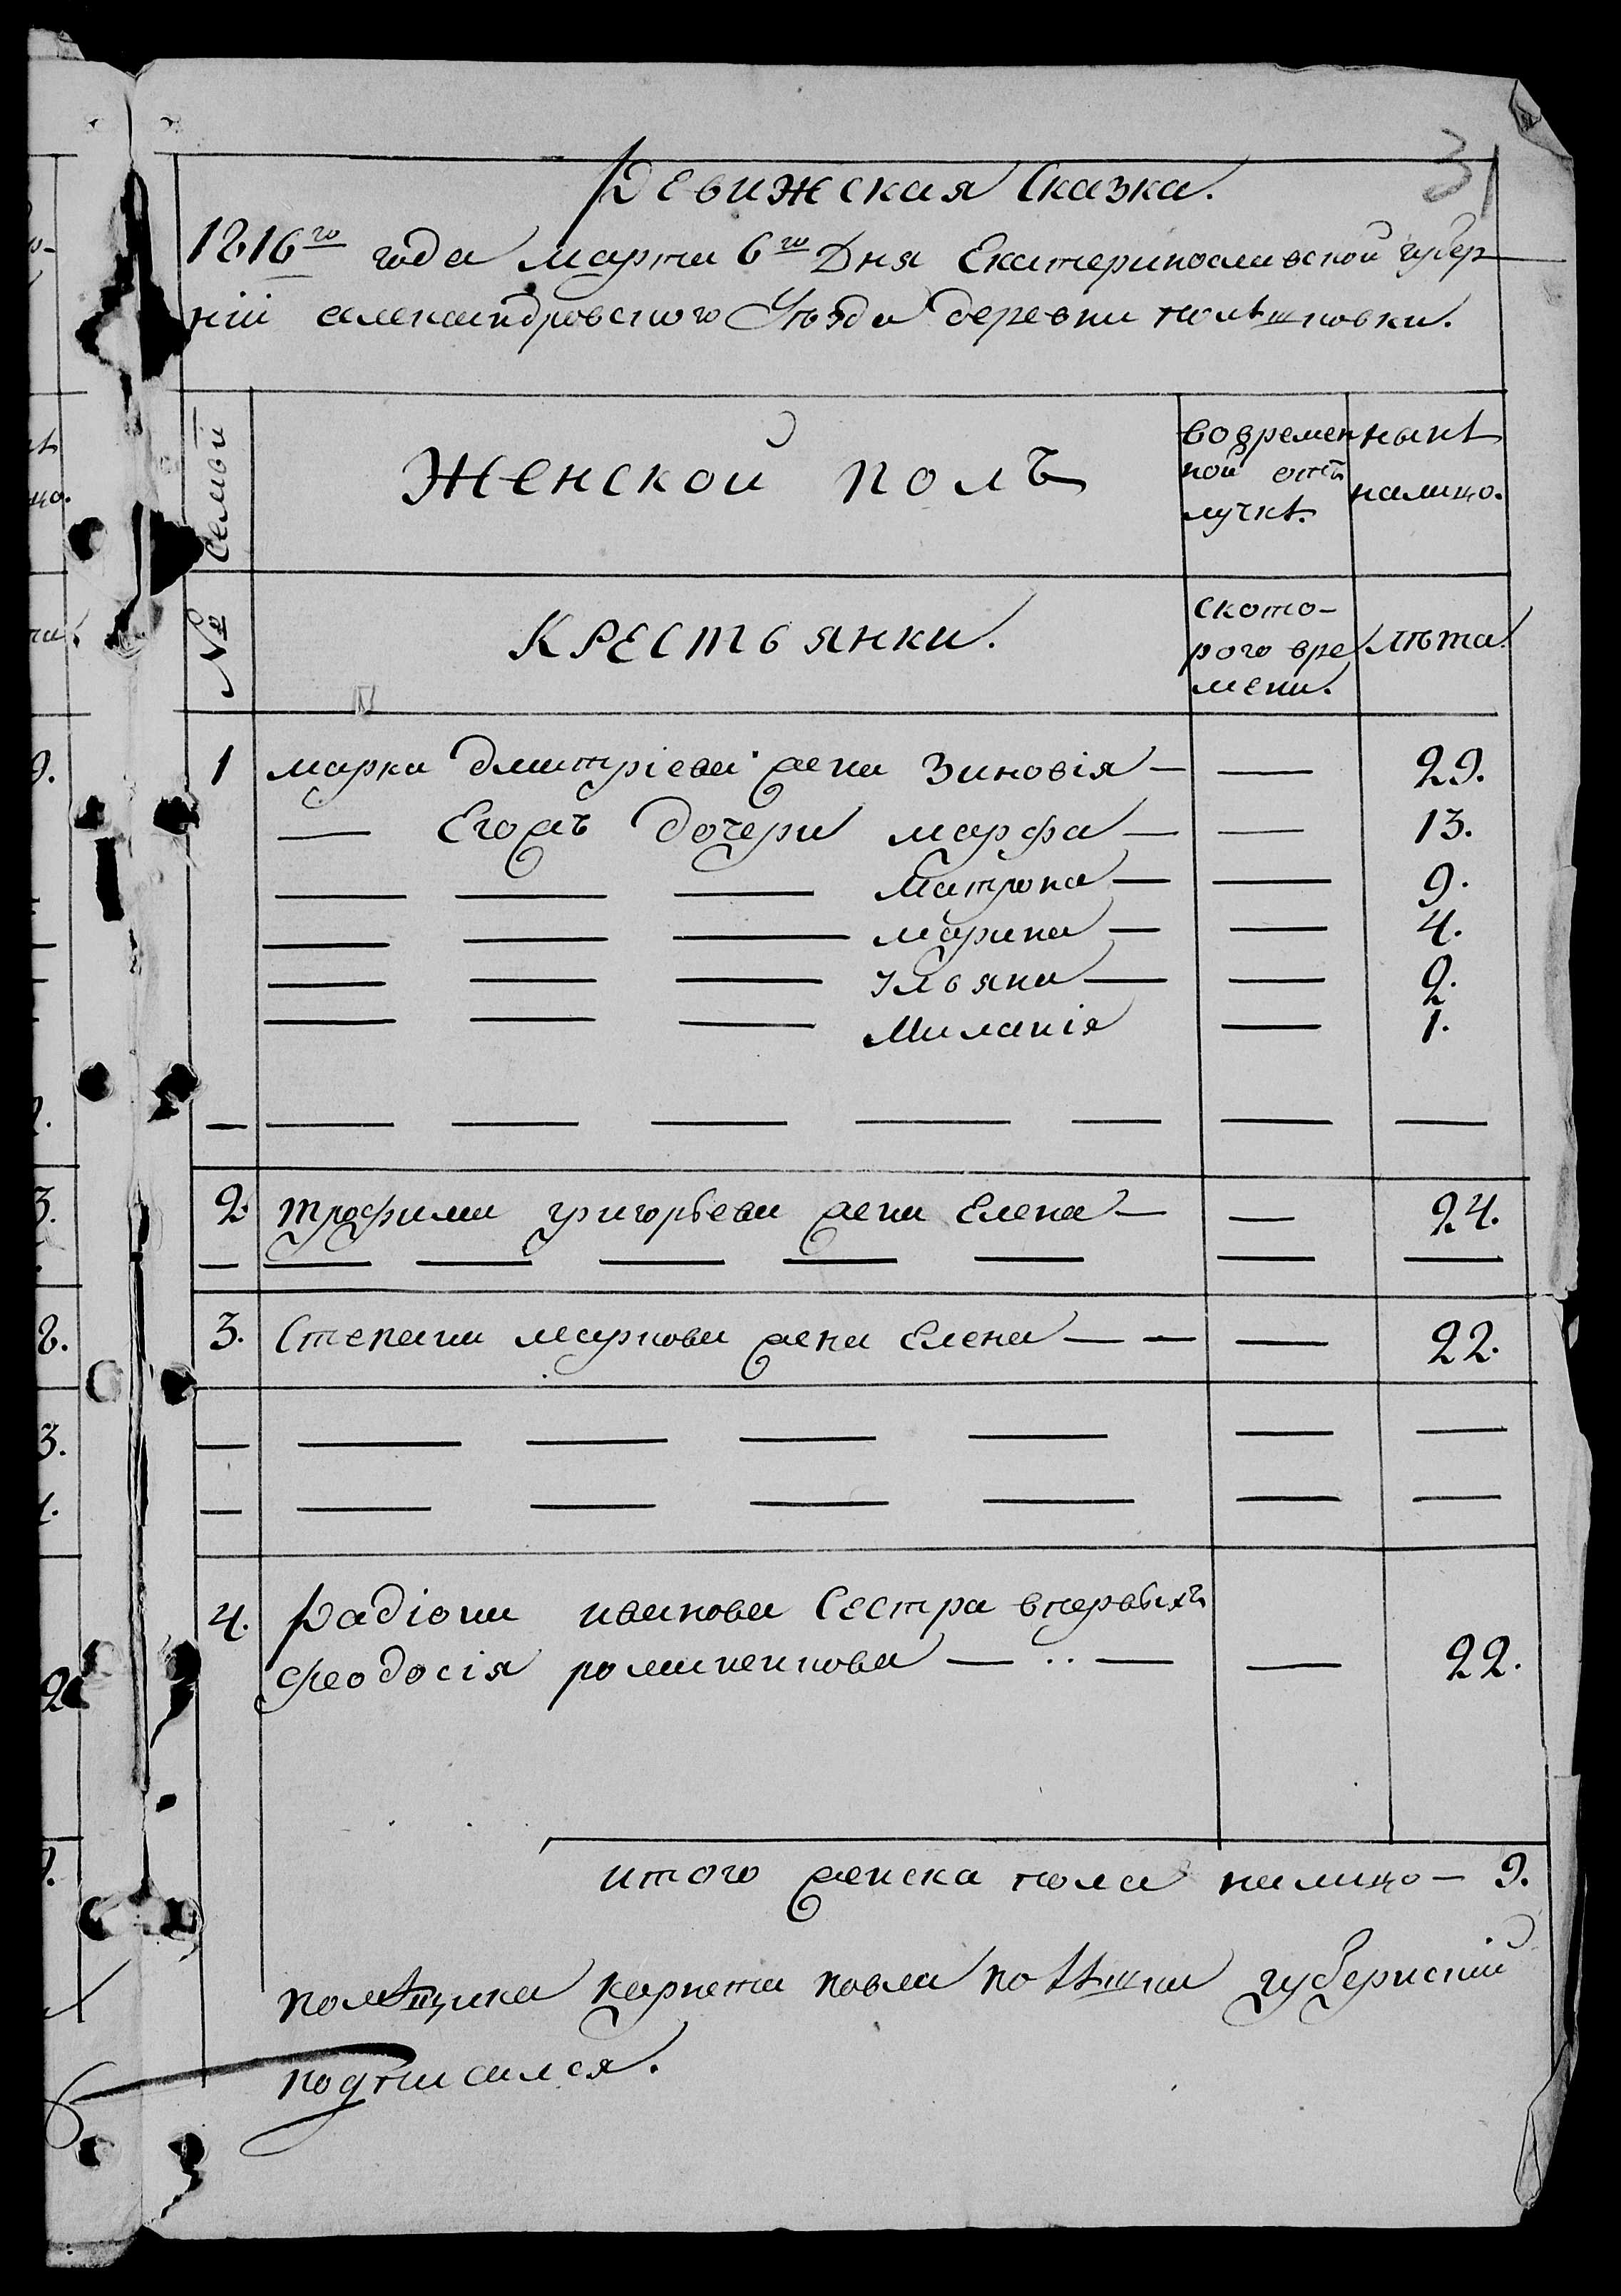 31
Ревижская Сказка.
1816го года марта 6го Дня Екатеринославской губер
нiи александровского Уѣзда деревни
№ Семьи
Женской полъ
вовремен
ной отъ
лучкѣ.
нынѣ
налицо.
Крестьянки.
ското-
рого вре
мени.
лѣта
1 марка дмитрiева жена Зиновiя — — 29.
— Егожъ дочери марфа — — 13.
— — — Матрона — — 9.
— — — марина — — 4.
— — — Ульяна — — 2.
— — — Миланiя — 1.
2. трофима григорьева жена Елена — — 24.
3. Степана маркова жена Елена — — — 22.
4. Радiона иванова Сестра вперьвыхъ
феодосiя романенкова — .. — — 22.
итого женска пола налицо — 9.
помѣщика карнета павла губернскiй
подписался.